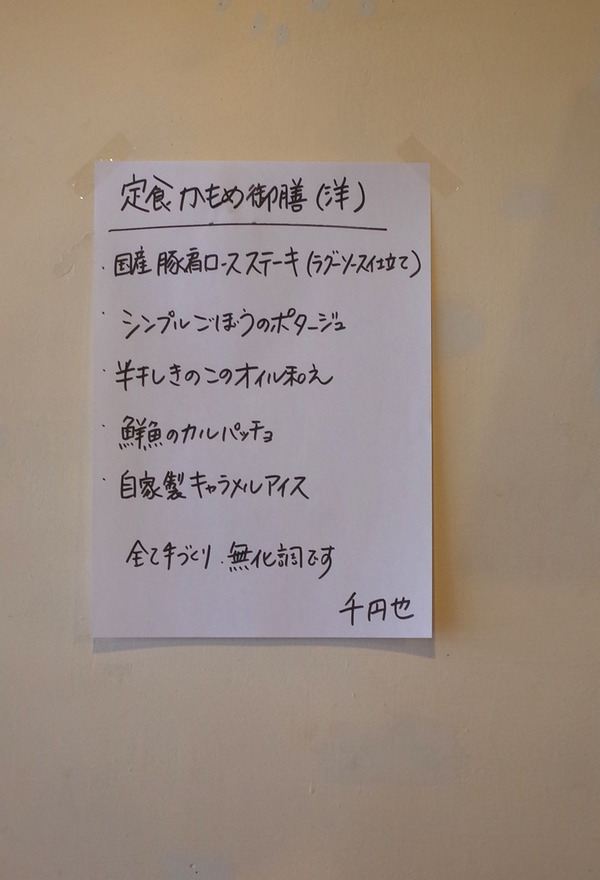 定食 かもめ御膳(洋)
・国産豚肩ロースステーキ(ラグーソース仕立て)
・シンプルごぼうのポタージュ
・半干しきのこのオイル和え
・鮮魚のカルパッチョ
・自家製キャラメルアイス
全て手づくり・無化調です
千円也